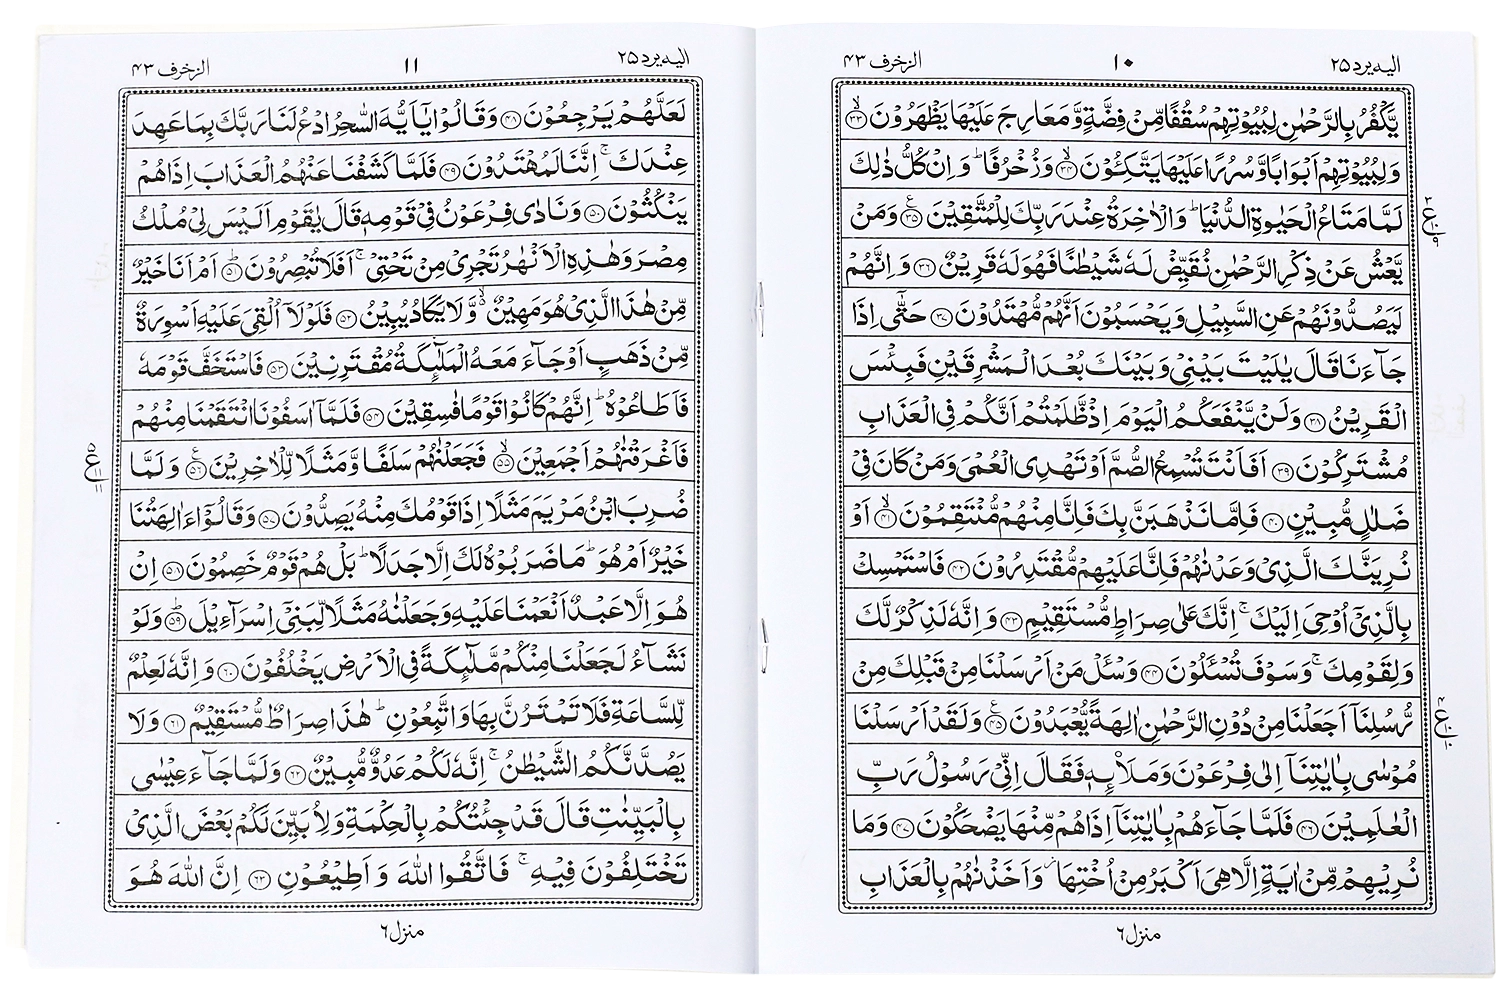 الیه یرد ۲۵
۱۰
الزخرف ۴۳
یَّکْفُرُ بِالرَّحْمٰنِ لِبُیُوْتِهِمْ سُقُفًا مِّنْ فِضَّةٍ وَّ مَعَارِجَ عَلَیْهَا یَظْهَرُوْنَ ۙ﴿۳۳﴾
وَ لِبُیُوْتِهِمْ اَبْوَابًا وَّ سُرُرًا عَلَیْهَا یَتَّکِـُٔوْنَ ۙ﴿۳۴﴾ وَ زُخْرُفًا ؕ وَ اِنْ کُلُّ ذٰلِكَ
لَمَّا مَتَاعُ الْحَیٰوةِ الدُّنْیَا ؕ وَ الْاٰخِرَةُ عِنْدَ رَبِّكَ لِلْمُتَّقِیْنَ ﴿۳۵﴾ وَ مَنْ
یَّعْشُ عَنْ ذِکْرِ الرَّحْمٰنِ نُقَیِّضْ لَهٗ شَیْطٰنًا فَهُوَ لَهٗ قَرِیْنٌ ﴿۳۶﴾ وَ اِنَّهُمْ
لَیَصُدُّوْنَهُمْ عَنِ السَّبِیْلِ وَ یَحْسَبُوْنَ اَنَّهُمْ مُّهْتَدُوْنَ ﴿۳۷﴾ حَتّٰۤی اِذَا
جَآءَنَا قَالَ یٰلَیْتَ بَیْنِیْ وَ بَیْنَكَ بُعْدَ الْمَشْرِقَیْنِ فَبِئْسَ
الْقَرِیْنُ ﴿۳۸﴾ وَ لَنْ یَّنْفَعَکُمُ الْیَوْمَ اِذْ ظَّلَمْتُمْ اَنَّکُمْ فِی الْعَذَابِ
مُشْتَرِکُوْنَ ﴿۳۹﴾ اَفَاَنْتَ تُسْمِعُ الصُّمَّ اَوْ تَهْدِی الْعُمْیَ وَ مَنْ کَانَ فِیْ
ضَلٰلٍ مُّبِیْنٍ ﴿۴۰﴾ فَاِمَّا نَذْهَبَنَّ بِكَ فَاِنَّا مِنْهُمْ مُّنْتَقِمُوْنَ ۙ﴿۴۱﴾ اَوْ
نُرِیَنَّكَ الَّذِیْ وَعَدْنٰهُمْ فَاِنَّا عَلَیْهِمْ مُّقْتَدِرُوْنَ ﴿۴۲﴾ فَاسْتَمْسِكْ
بِالَّذِیْۤ اُوْحِیَ اِلَیْكَ ۚ اِنَّكَ عَلٰی صِرَاطٍ مُّسْتَقِیْمٍ ﴿۴۳﴾ وَ اِنَّهٗ لَذِکْرٌ لَّكَ
وَ لِقَوْمِكَ ۚ وَ سَوْفَ تُسْـَٔلُوْنَ ﴿۴۴﴾ وَ سْـَٔلْ مَنْ اَرْسَلْنَا مِنْ قَبْلِكَ مِنْ
رُّسُلِنَاۤ اَجَعَلْنَا مِنْ دُوْنِ الرَّحْمٰنِ اٰلِهَةً یُّعْبَدُوْنَ ﴿۴۵﴾ وَ لَقَدْ اَرْسَلْنَا
مُوْسٰی بِاٰیٰتِنَاۤ اِلٰی فِرْعَوْنَ وَ مَلَا۠ئِهٖ فَقَالَ اِنِّیْ رَسُوْلُ رَبِّ
الْعٰلَمِیْنَ ﴿۴۶﴾ فَلَمَّا جَآءَهُمْ بِاٰیٰتِنَاۤ اِذَا هُمْ مِّنْهَا یَضْحَکُوْنَ ﴿۴۷﴾ وَ مَا
نُرِیْهِمْ مِّنْ اٰیَةٍ اِلَّا هِیَ اَکْبَرُ مِنْ اُخْتِهَا ؗ وَ اَخَذْنٰهُمْ بِالْعَذَابِ
منزل ۶
الیه یرد ۲۵
۱۱
الزخرف ۴۳
لَعَلَّهُمْ یَرْجِعُوْنَ ﴿۴۸﴾ وَ قَالُوْا یٰۤاَیُّهَ السّٰحِرُ ادْعُ لَنَا رَبَّكَ بِمَا عَهِدَ
عِنْدَكَ ۚ اِنَّنَا لَمُهْتَدُوْنَ ﴿۴۹﴾ فَلَمَّا کَشَفْنَا عَنْهُمُ الْعَذَابَ اِذَا هُمْ
یَنْکُثُوْنَ ﴿۵۰﴾ وَ نَادٰی فِرْعَوْنُ فِیْ قَوْمِهٖ قَالَ یٰقَوْمِ اَلَیْسَ لِیْ مُلْكُ
مِصْرَ وَ هٰذِهِ الْاَنْهٰرُ تَجْرِیْ مِنْ تَحْتِیْ ۚ اَفَلَا تُبْصِرُوْنَ ؕ﴿۵۱﴾ اَمْ اَنَا خَیْرٌ
مِّنْ هٰذَا الَّذِیْ هُوَ مَهِیْنٌ ۙ۬ وَّ لَا یَکَادُ یُبِیْنُ ﴿۵۲﴾ فَلَوْ لَاۤ اُلْقِیَ عَلَیْهِ اَسْوِرَةٌ
مِّنْ ذَهَبٍ اَوْ جَآءَ مَعَهُ الْمَلٰٓئِکَةُ مُقْتَرِنِیْنَ ﴿۵۳﴾ فَاسْتَخَفَّ قَوْمَهٗ
فَاَطَاعُوْهُ ؕ اِنَّهُمْ کَانُوْا قَوْمًا فٰسِقِیْنَ ﴿۵۴﴾ فَلَمَّاۤ اٰسَفُوْنَا انْتَقَمْنَا مِنْهُمْ
فَاَغْرَقْنٰهُمْ اَجْمَعِیْنَ ۙ﴿۵۵﴾ فَجَعَلْنٰهُمْ سَلَفًا وَّ مَثَلًا لِّلْاٰخِرِیْنَ ﴿۵۶﴾ وَ لَمَّا
ضُرِبَ ابْنُ مَرْیَمَ مَثَلًا اِذَا قَوْمُكَ مِنْهُ یَصِدُّوْنَ ﴿۵۷﴾ وَ قَالُوْۤا ءَاٰلِهَتُنَا
خَیْرٌ اَمْ هُوَ ؕ مَا ضَرَبُوْهُ لَكَ اِلَّا جَدَلًا ؕ بَلْ هُمْ قَوْمٌ خَصِمُوْنَ ﴿۵۸﴾ اِنْ
هُوَ اِلَّا عَبْدٌ اَنْعَمْنَا عَلَیْهِ وَ جَعَلْنٰهُ مَثَلًا لِّبَنِیْۤ اِسْرَآءِیْلَ ؕ﴿۵۹﴾ وَ لَوْ
نَشَآءُ لَجَعَلْنَا مِنْکُمْ مَّلٰٓئِکَةً فِی الْاَرْضِ یَخْلُفُوْنَ ﴿۶۰﴾ وَ اِنَّهٗ لَعِلْمٌ
لِّلسَّاعَةِ فَلَا تَمْتَرُنَّ بِهَا وَ اتَّبِعُوْنِ ؕ هٰذَا صِرَاطٌ مُّسْتَقِیْمٌ ﴿۶۱﴾ وَ لَا
یَصُدَّنَّکُمُ الشَّیْطٰنُ ۚ اِنَّهٗ لَکُمْ عَدُوٌّ مُّبِیْنٌ ﴿۶۲﴾ وَ لَمَّا جَآءَ عِیْسٰی
بِالْبَیِّنٰتِ قَالَ قَدْ جِئْتُکُمْ بِالْحِکْمَةِ وَ لِاُبَیِّنَ لَکُمْ بَعْضَ الَّذِیْ
تَخْتَلِفُوْنَ فِیْهِ ۚ فَاتَّقُوا اللّٰهَ وَ اَطِیْعُوْنِ ﴿۶۳﴾ اِنَّ اللّٰهَ هُوَ
منزل ۶